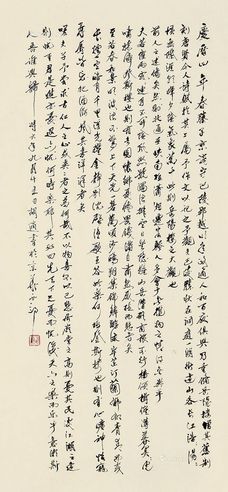 慶曆四年春滕子京謫守巴陵郡越明年政通人和百廢俱興乃重修岳陽樓增其舊制
刻唐賢今人詩賦於其上屬予作文以記之予觀夫巴陵勝狀在洞庭一湖銜遠山吞長江浩浩湯
湯橫無際涯朝暉夕陰氣象萬千此則岳陽樓之大觀也
前人之述備矣然則北通巫峽南極瀟湘遷客騷人多會于此覽物之情得無異乎
若夫霪雨霏霏連月不開陰風怒號濁浪排空日星隱曜山岳潛形商旅不行檣傾楫摧薄暮冥冥虎
嘯猿啼登斯樓也則有去國懷鄉憂讒畏譏滿目蕭然感極而悲者矣
至若春和景明波瀾不驚上下天光一碧萬頃沙鷗翔集錦鱗游泳岸芷汀蘭郁郁青青而或
長煙一空皓月千里浮光躍金靜影沉璧漁歌互答此樂何極登斯樓也則有心曠神怡寵
辱皆忘把酒臨風其喜洋洋者矣
嗟夫予嘗求古仁人之心或異二者之為何哉不以物喜不以己悲居廟堂之高則憂其民處江湖之遠
則憂其君是進亦憂退亦憂然則何時而樂耶其必曰先天下之憂而憂後天下之樂而樂乎噫微斯
人吾誰與歸 時 年九月十五日 書於京華